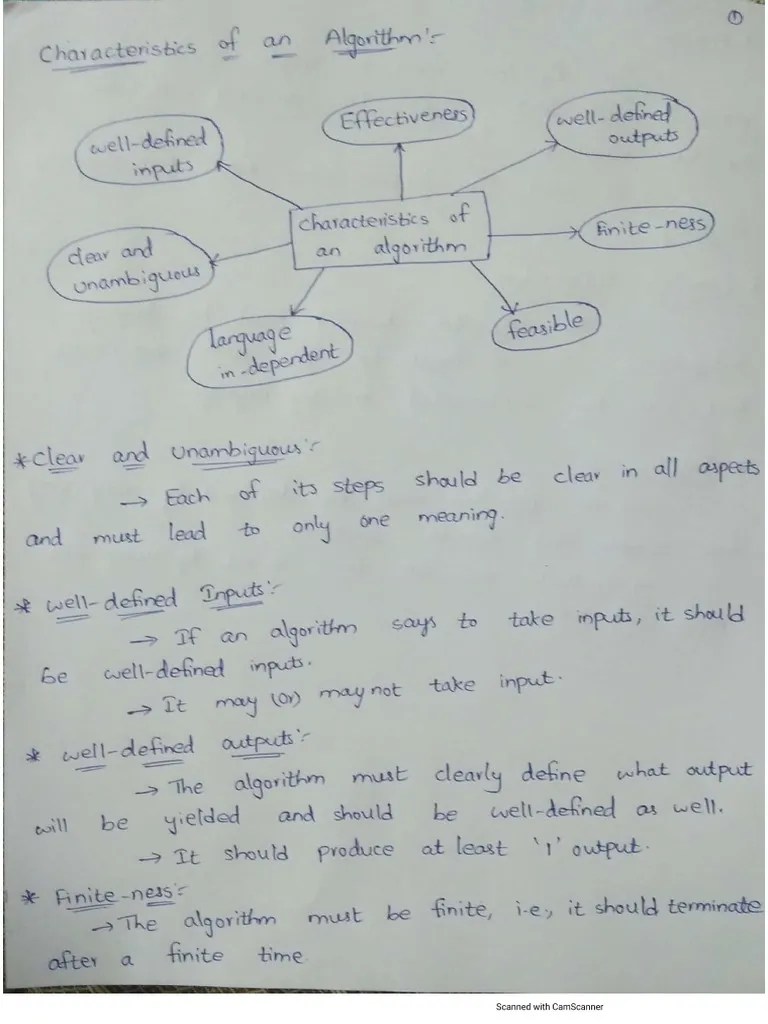 ①
Characteristics of an Algorithm:-
Effectiveness
well-defined
outputs
well-defined
inputs
characteristics of
an algorithm
Finite-ness
clear and
unambiguous
feasible
language
in-dependent
*Clear and Unambiguous:-
→ Each of its steps should be clear in all aspects
and must lead to only one meaning.
* well-defined Inputs:-
→ If an algorithm says to take inputs, it should
be well-defined inputs.
→ It may (or) may not take input.
* well-defined outputs:-
→ The algorithm must clearly define what output
will be yielded and should be well-defined as well.
→ It should produce at least '1' output.
* Finite-ness:-
→ The algorithm must be finite, i.e., it should terminate
after a finite time
Scanned with CamScanner